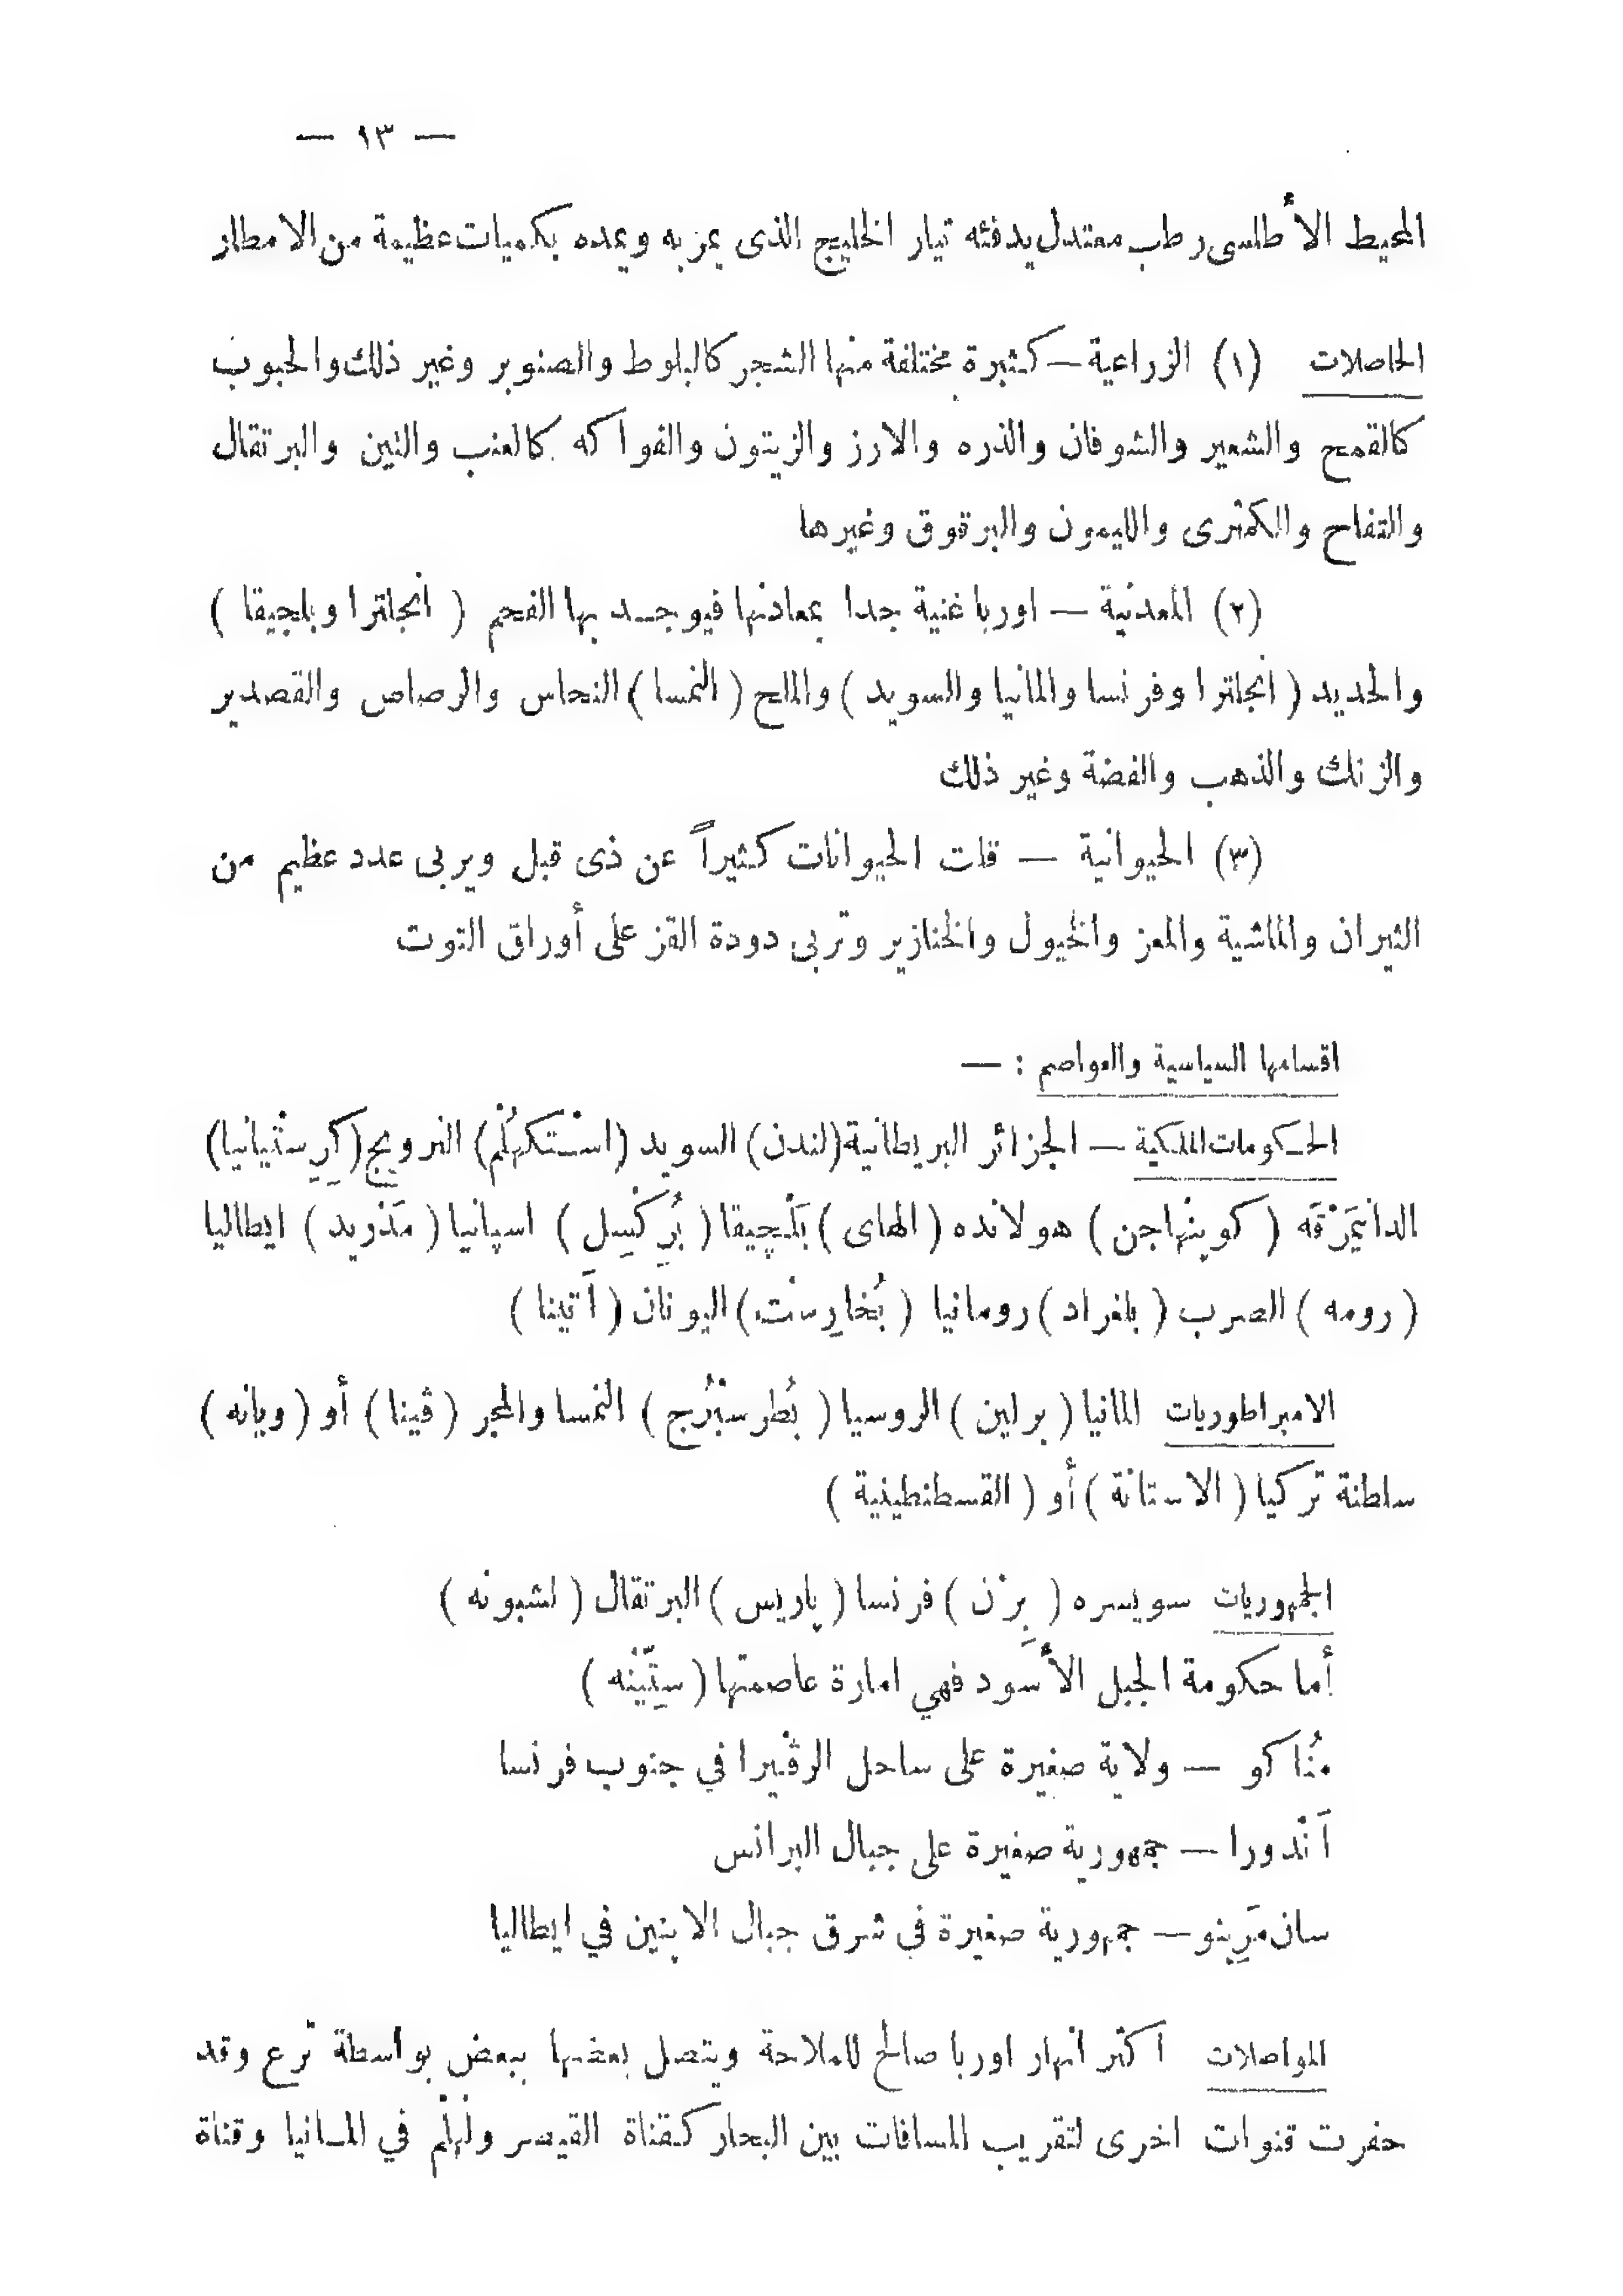 — ٩٣ —
المحيط الأطلسى رطب معتدل يدفئه تيار الخليج الذى يمر به ويمده بكميات عظيمة من الامطار
الحاصلات (١) الزراعية — كثيرة مختلفة منها الشجر كالبلوط والصنوبر وغير ذلك والحبوب
كالقمح والشعير والشوفان والذره والارز والزيتون والفواكه كالعنب والتين والبرتقال
والتفاح والكمثرى والليمون والبرقوق وغيرها
(٢) المعدنية — اوربا غنية جدا بمعادنها فيوجد بها الفحم ( انجلترا وبلجيقا )
والحديد ( انجلترا وفرنسا والمانيا والسويد ) والملح ( النمسا ) النحاس والرصاص والقصدير
والزنك والذهب والفضة وغير ذلك
(٣) الحيوانية — قلت الحيوانات كثيراً عن ذى قبل ويربى عدد عظيم من
الثيران والماشية والمعز والخيول والخنازير وتربى دودة القز على أوراق التوت
اقسامها السياسية والعواصم : —
الحكومات الملكية — الجزائر البريطانية (لندن) السويد (اسْتكهُلْم) النرويج (كِرِسْتيانيا)
الدانيَمَرْقَه ( كوپنهاجن ) هولانده ( الهاى ) بَلْچيقا ( بُرِكْسِل ) اسپانيا ( مَدْريد ) ايطاليا
( رومه ) الصرب ( بلغراد ) رومانيا ( بُخارِسْت ) اليونان ( اَتينا )
الامبراطوريات المانيا ( برلين ) الروسيا ( بُطرسْبُرْج ) النمسا والمجر ( ڤينا ) أو ( ويانه )
سلطنة تركيا ( الاستانة ) أو ( القسطنطينية )
الجمهوريات سويسره ( بِرْن ) فرنسا ( پاريس ) البرتقال ( لشبونه )
أما حكومة الجبل الأسود فهي امارة عاصمتها ( ستِّينْه )
مُنا كو — ولاية صغيرة على ساحل الرڤيرا في جنوب فرنسا
اَنْدورا — جمهورية صغيرة على جبال البرانس
سان مَرِينو — جمهورية صغيرة في شرق جبال الاپنين في ايطاليا
المواصلات اكثر انهار اوربا صالح للملاحة ويتصل بعضها ببعض بواسطة ترع وقد
حفرت قنوات اخرى لتقريب المسافات بين البحار كقناة القيصر ولْهلْم في المانيا وقناة